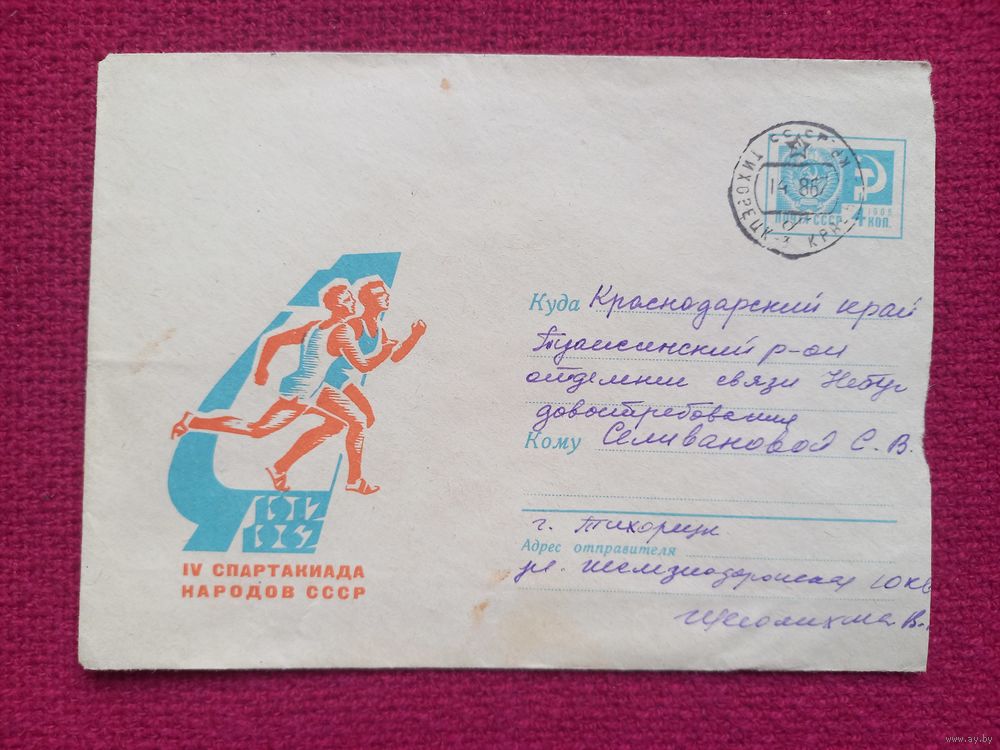 СССР
ТИХОРЕЦК-3 КРАС
14 867
ПОЧТА СССР
1966
4 КОП.
Куда Краснодарский край
Туапсинский р-он
отделении связи Небуг
довостребования
Кому Селивановой С. В.
г. Тихорецк
Адрес отправителя
ул. Железнодорожная 10 кв
В.
1917
1967
IV СПАРТАКИАДА
НАРОДОВ СССР
www.ay.by